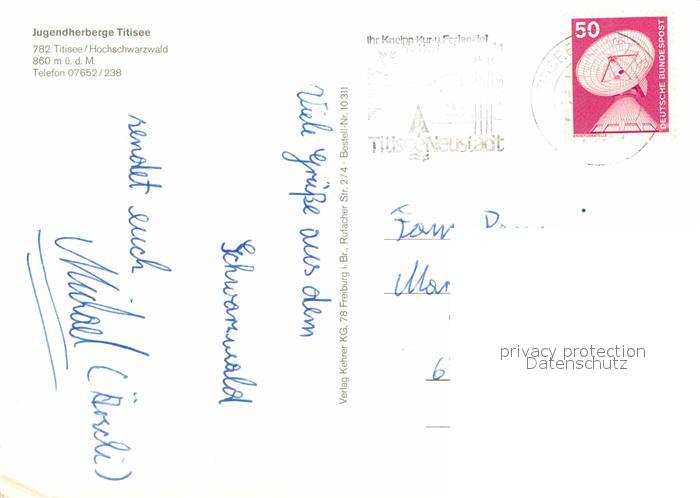 Jugendherberge Titisee
782 Titisee/Hochschwarzwald
860 m ü. d. M.
Telefon 07652/238
Viele Grüße aus dem
Schwarzwald
sendet euch
Michael
Verlag Kehrer KG, 78 Freiburg i. Br., Rufacher Str. 2/4 - Bestell-Nr. 10311
Ihr Kneipp-Kur- u. Ferienziel
Titisee-Neustadt
50
DEUTSCHE BUNDESPOST
Fam
6
privacy protection
Datenschutz